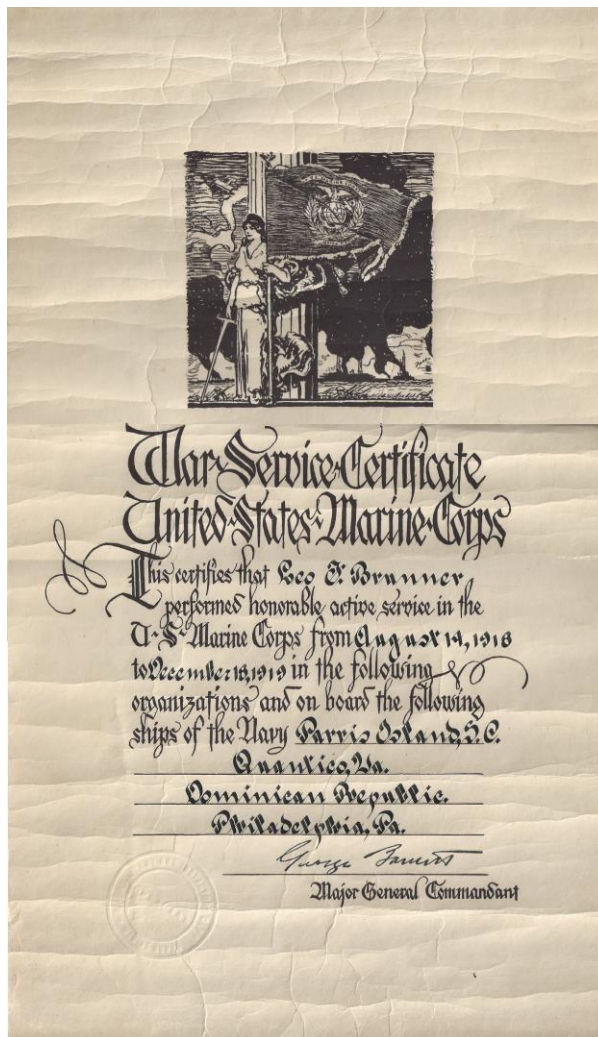 War Service Certificate
United States Marine Corps
This certifies that Leo O. Brunner,
performed honorable active service in the
U. S. Marine Corps from August 14, 1918
to December 18, 1919 in the following
organizations and on board the following
ships of the Navy Parris Island, S.C.
Quantico, Va.
Dominican Republic.
Philadelphia, Pa.
George Barnett
Major General Commandant